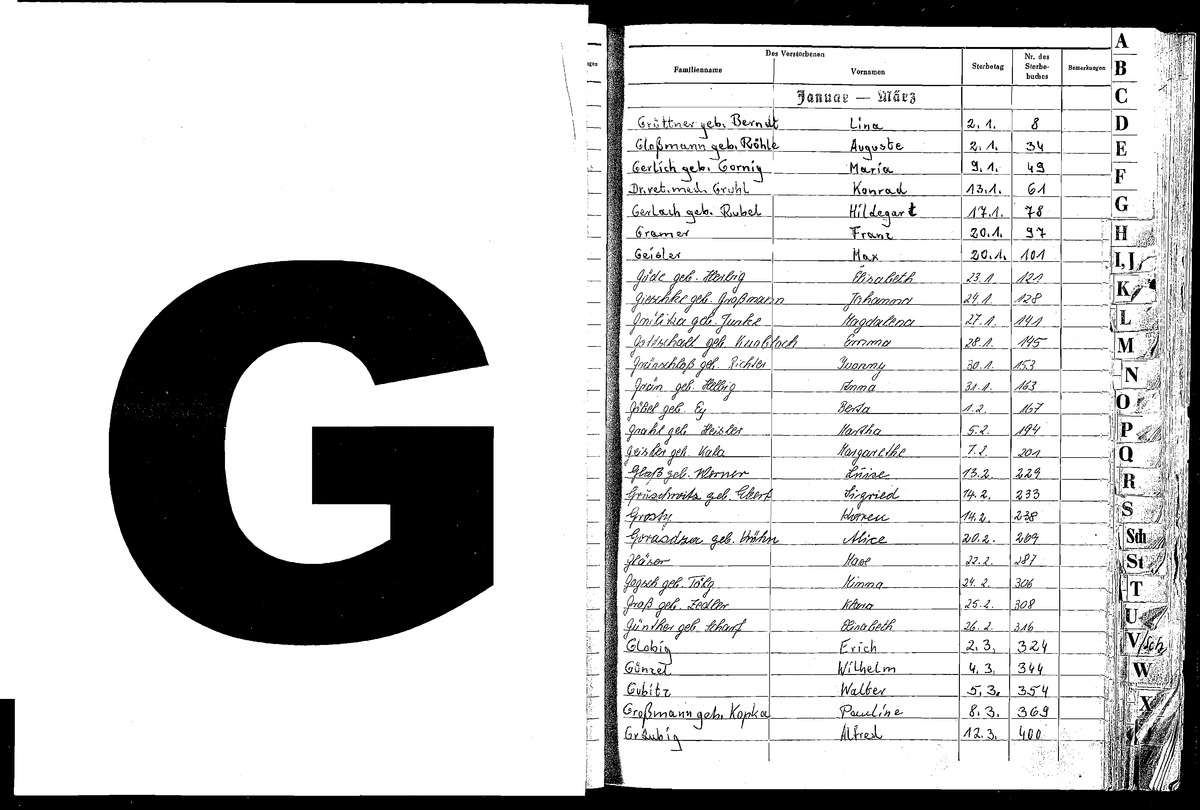 G
Des Verstorbenen
Familienname Vornamen Sterbetag Nr. des Sterbe-buches Bemerkungen
Januar — März
Grüttner geb. Berndt Lina 2.1. 8
Gloßmann geb. Röhle Auguste 2.1. 34
Gerlich geb. Gornig Maria 9.1. 49
Dr.vet.med. Gruhl Konrad 13.1. 61
Gerlach geb. Rubel Hildegart 17.1. 78
Gramer Franz 20.1. 97
Geisler Max 20.1. 101
Güde geb. Herbig Elisabeth 23.1. 121
Gieschke geb. Großmann Johanna 24.1. 128
geb. Junke Magdalena 27.1. 141
Gottschalt geb. Emma 28.1. 145
Grünschloß geb. Richter Yvonny 30.1. 153
Grün geb. Helbig Anna 31.1. 163
Göbel geb. Ey Berta 1.2. 167
Grahl geb. Heisler Martha 5.2. 194
Geisler geb. Kala Margarethe 7.2. 201
Glaß geb. Werner Luise 13.2. 229
Gruschwitz geb. Sigried 14.2. 233
Grosty 14.2. 238
Gorasdza geb. Alice 20.2. 269
Gläser 22.2. 287
Gogsch geb. Minna 24.2. 306
Groß geb. Zedler Klara 25.2. 308
Günther geb. Scharf Elisabeth 26.2. 316
Globig Erich 2.3. 324
Günzel Wilhelm 4.3. 344
Gubitz Walter 5.3. 354
Großmann geb. Kopka Pauline 8.3. 369
Gräubig Alfred 12.3. 400
A
B
C
D
E
F
G
H
I, J
K
L
M
N
O
P
Q
R
S
Sch
St
T
U
V/Sch
W
X